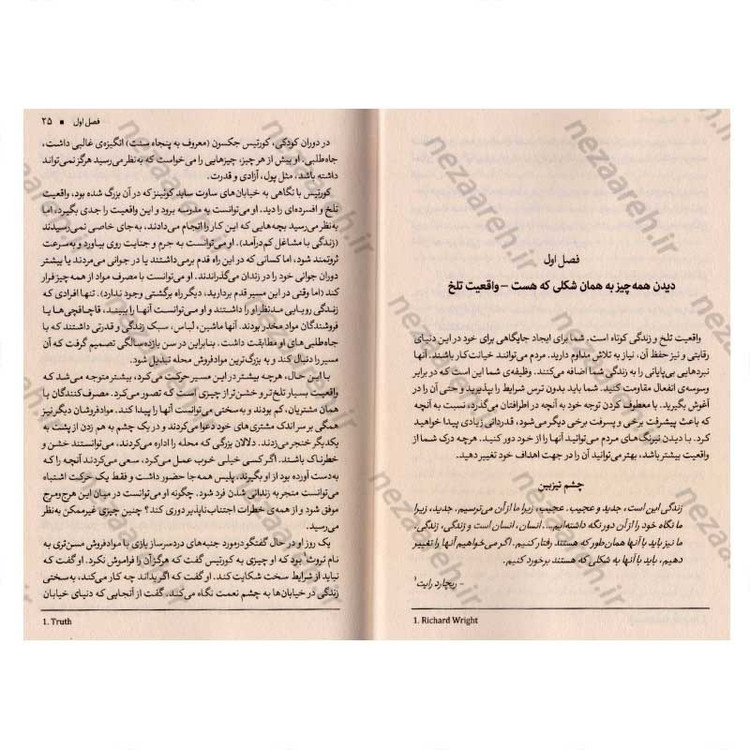 فصل اول
دیدن همه‌چیز به همان شکلی که هست – واقعیت تلخ
واقعیت تلخ و زندگی کوتاه است. شما برای ایجاد جایگاهی برای خود در این دنیای
رقابتی و نیز حفظ آن، نیاز به تلاش مداوم دارید. مردم می‌توانند خیانت‌کار باشند. آنها
نبردهایی بی‌پایانی را به زندگی شما اضافه می‌کنند. وظیفه‌ی شما این است که در برابر
وسوسه‌ی انفعال مقاومت کنید. شما باید بدون ترس شرایط را بپذیرید و حتی آن را در
آغوش بگیرید. با معطوف کردن توجه خود به آنچه در اطرافتان می‌گذرد، نسبت به آنچه
که باعث پیشرفت برخی و پسرفت برخی دیگر می‌شود، قدردانی زیادی پیدا خواهید
کرد. با دیدن نیرنگ‌های مردم می‌توانید آنها را از خود دور کنید. هرچه درک شما از
واقعیت بیشتر باشد، بهتر می‌توانید آن را در جهت اهداف خود تغییر دهید.
چشم تیزبین
زندگی این است، جدید و عجیب. عجیب، زیرا ما از آن می‌ترسیم. جدید، زیرا
ما نگاه خود را از آن دور نگه داشته‌ایم... انسان، انسان است و زندگی، زندگی.
ما نیز باید با آنها همان‌طور که هستند رفتار کنیم. اگر می‌خواهیم آنها را تغییر
دهیم، باید با آنها به شکلی که هستند برخورد کنیم.
- ریچارد رایت۱
1. Richard Wright
فصل اول ■ ۲۵
در دوران کودکی، کورتیس جکسون (معروف به پنجاه سنت) انگیزه‌ی غالبی داشت،
جاه‌طلبی. او بیش از هر چیز، چیزهایی را می‌خواست که به‌نظر می‌رسید هرگز نمی‌تواند
داشته باشد، مثل پول، آزادی و قدرت.
کورتیس با نگاهی به خیابان‌های ساوت ساید کوئینز که در آن بزرگ شده بود، واقعیت
تلخ و افسرده‌ای را دید. او می‌توانست به مدرسه برود و این واقعیت را جدی بگیرد، اما
به‌نظر می‌رسید بچه‌هایی که این کار را انجام می‌دادند، به‌جای خاصی نمی‌رسیدند
(زندگی با مشاغل کم‌درآمد). او می‌توانست به جرم و جنایت روی بیاورد و به‌سرعت
ثروتمند شود، اما کسانی که در این راه قدم برمی‌داشتند یا در جوانی می‌مردند یا بیشتر
دوران جوانی خود را در زندان می‌گذراندند. او می‌توانست با مصرف مواد از همه چیز فرار
کند (اما وقتی در این مسیر قدم بردارید، دیگر راه برگشتی وجود ندارد). تنها افرادی که
زندگی رویایی مدنظر او را داشتند و او می‌توانست آنها را ببیند، قاچاقچی‌ها یا
فروشندگان مواد مخدر بودند. آنها ماشین، لباس، سبک زندگی و قدرتی داشتند که با
جاه‌طلبی‌های او مطابقت داشت. بنابراین در سن یازده سالگی تصمیم گرفت که آن
مسیر را دنبال کند و به بزرگ‌ترین موادفروش محله تبدیل شود.
با این حال، هرچه بیشتر در این مسیر حرکت می‌کرد، بیشتر متوجه می‌شد که
واقعیت بسیار تلخ‌تر و خشن‌تر از چیزی است که تصور می‌کرد. مصرف‌کنندگان یا
همان مشتریان، کم بودند و به‌سختی می‌توانست آنها را پیدا کند. موادفروشان دیگر نیز
همگی بر سر اندک مشتری‌های خود دعوا می‌کردند و در یک چشم به هم زدن از پشت به
یکدیگر خنجر می‌زدند. دلالان بزرگی که محله را اداره می‌کردند، می‌توانستند خشن و
خطرناک باشند. اگر کسی خیلی خوب عمل می‌کرد، سعی می‌کردند آنچه را که
به‌دست آورده بود از او بگیرند. پلیس همه‌جا حضور داشت و فقط یک حرکت اشتباه
می‌توانست منجر به زندانی شدن فرد شود. چگونه او می‌توانست در میان این هرج‌ومرج
موفق شود و از همه‌ی خطرات اجتناب‌ناپذیر دوری کند؟ چنین چیزی غیرممکن به‌نظر
می‌رسید.
یک روز او در حال گفتگو درمورد جنبه‌های دردسرساز بازی با موادفروش مسن‌تری به
نام تروث۱ بود که او چیزی به کورتیس گفت که هرگز آن را فراموش نکرد. او گفت که
نباید از شرایط سخت شکایت کند. او گفت که اگر بداند چه کار می‌کند، به‌سختی
زندگی در خیابان‌ها به چشم نعمت نگاه می‌کند. گفت از آنجایی که دنیای خیابان
1. Truth
nezaareh.ir